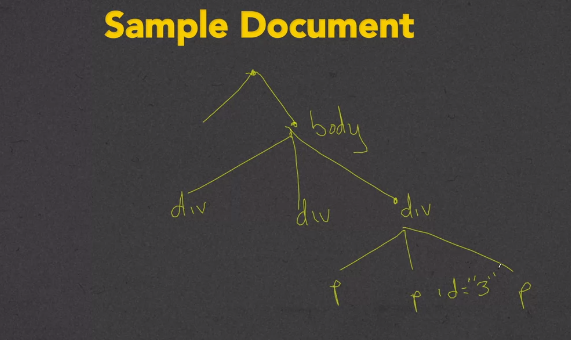 Sample Document
body
div div div
p p id="3" p